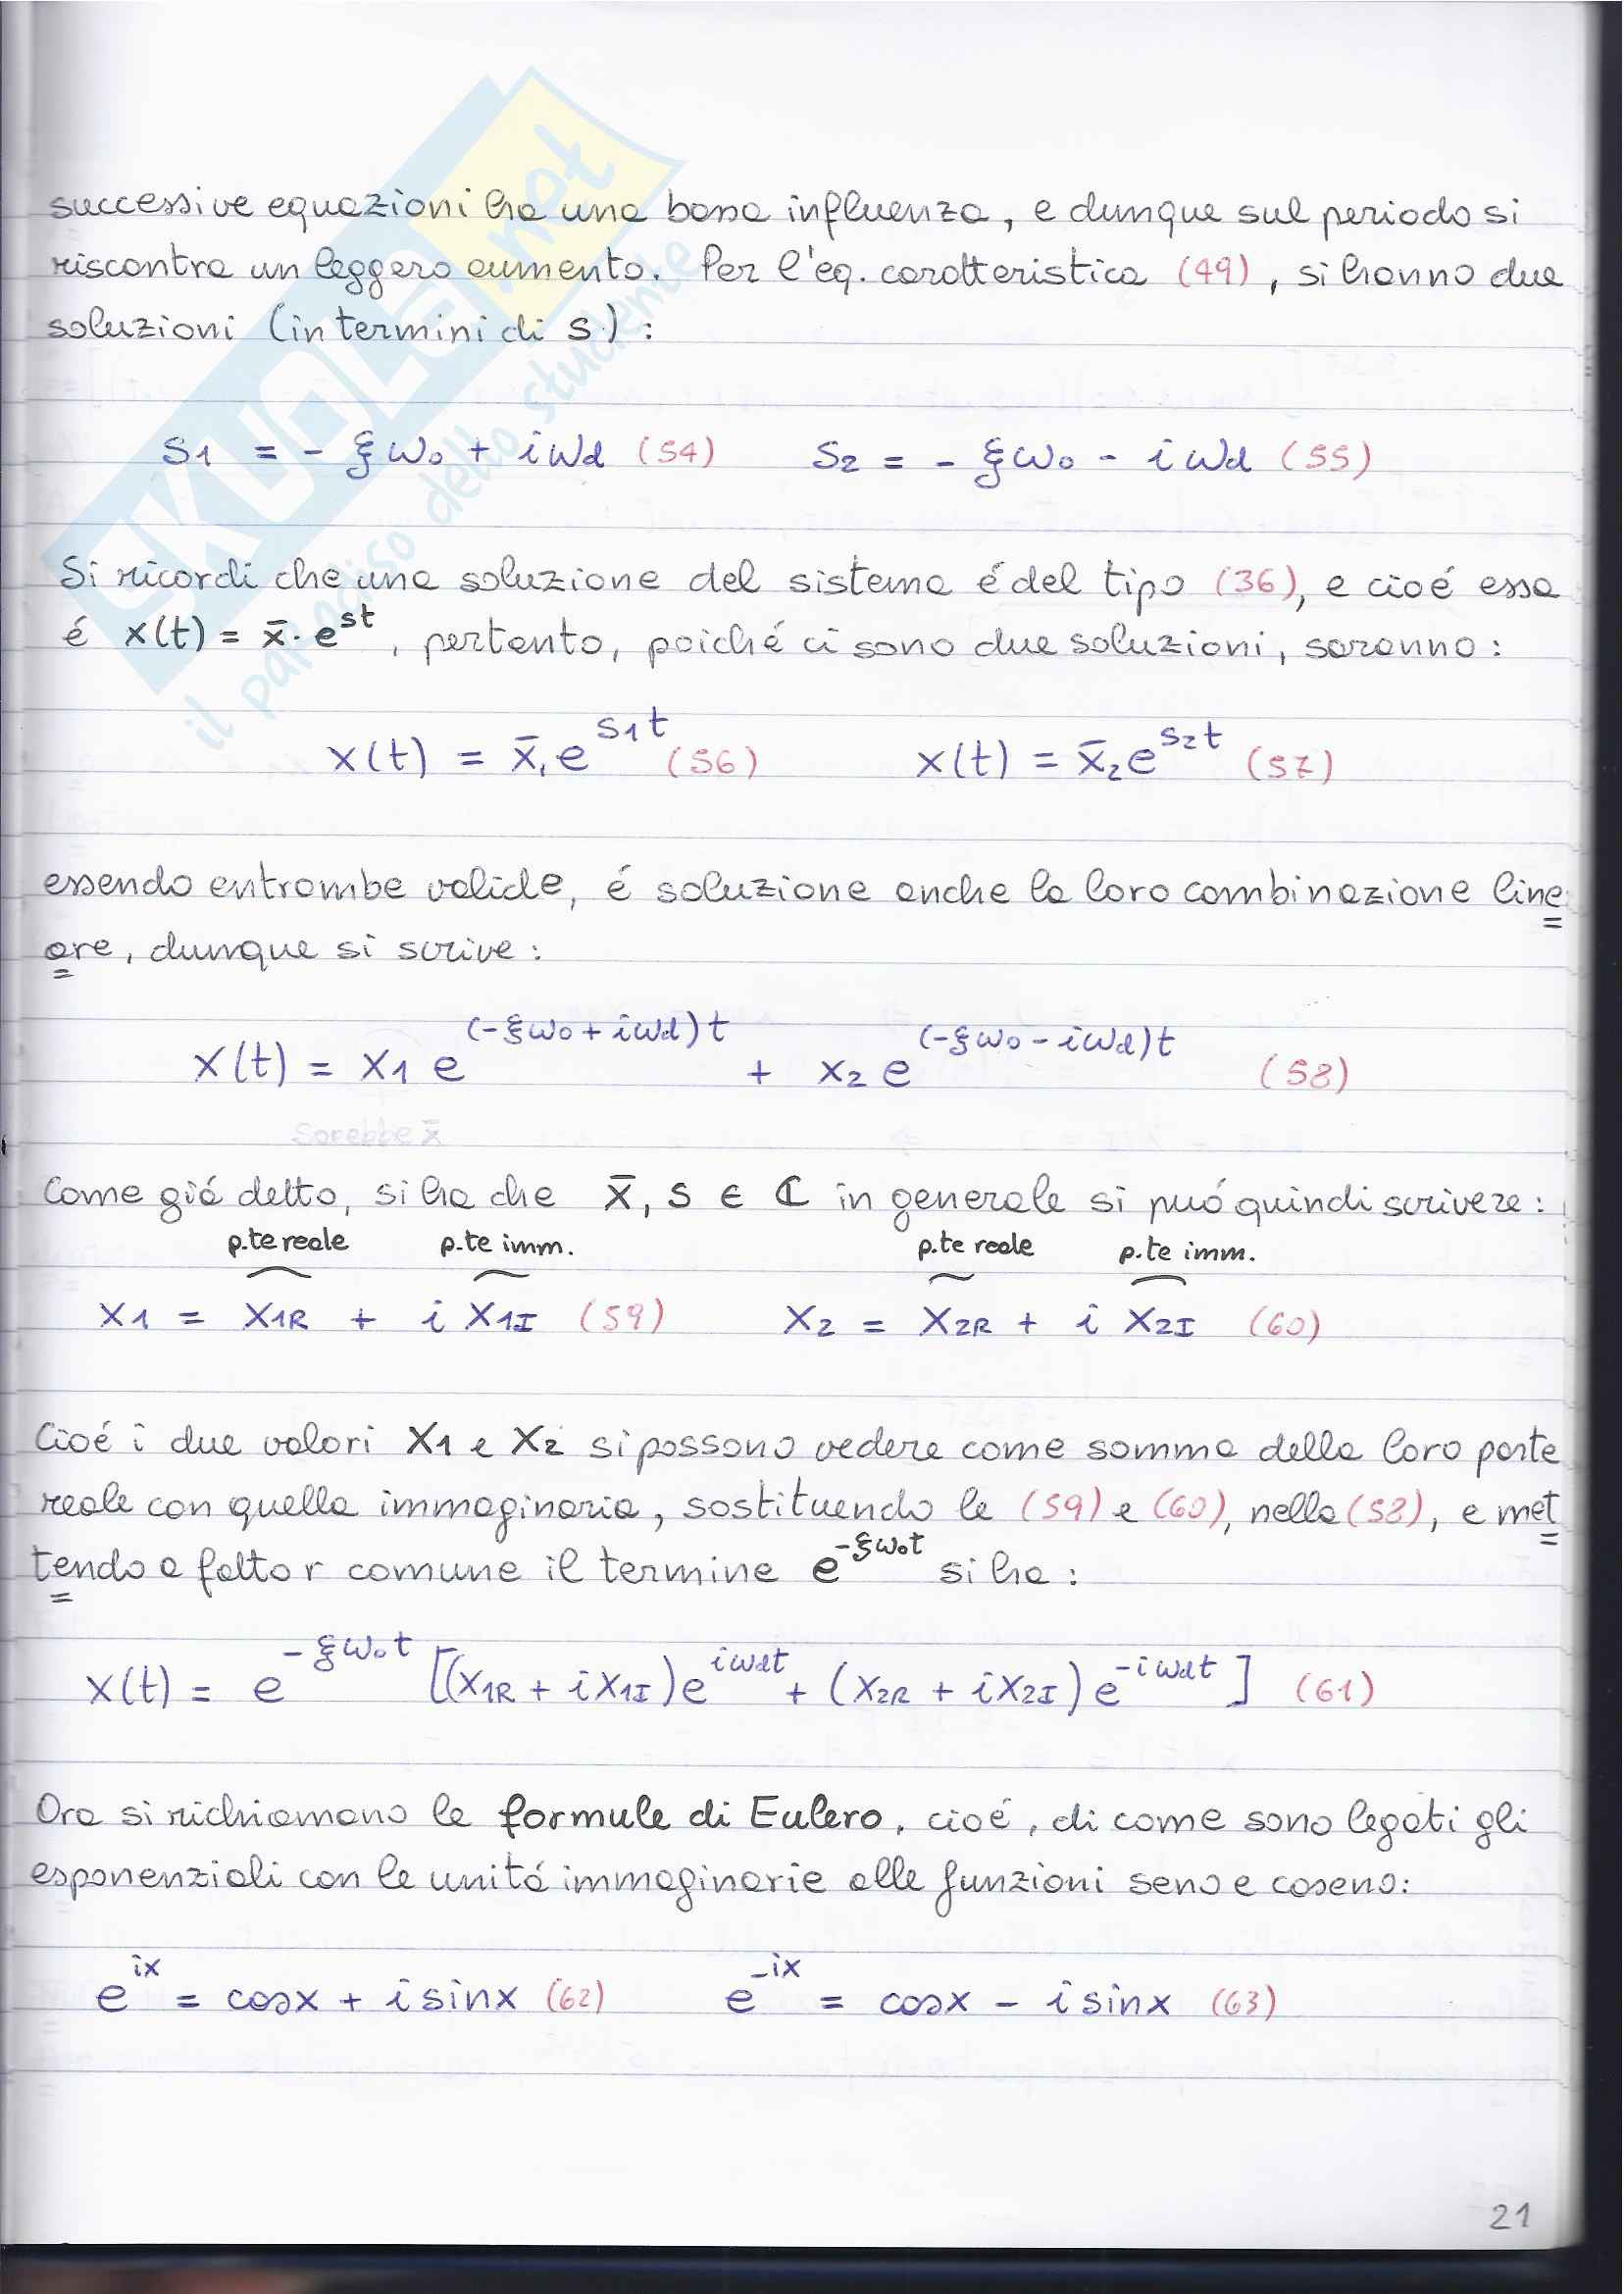 successive equazioni ha una bassa influenza, e dunque sul periodo si
riscontra un leggero aumento. Per l'eq. caratteristica (49), si hanno due
soluzioni (in termini di s):
s1 = - ξω0 + iωd (54) s2 = - ξω0 - iωd (55)
Si ricordi che una soluzione del sistema é del tipo (36), e cioé essa
é x(t) = x̄ · e^st, pertanto, poiché ci sono due soluzioni, saranno:
x(t) = x̄1 e^s1t (56) x(t) = x̄2 e^s2t (57)
essendo entrambe valide, é soluzione anche la loro combinazione line=
are, dunque si scrive:
x(t) = x1 e^(-ξω0 + iωd)t + x2 e^(-ξω0 - iωd)t (58)
Sarebbe x̄
Come giá detto, si ha che x̄, s ∈ ℂ in generale si puó quindi scrivere:
p.te reale p.te imm. p.te reale p.te imm.
x1 = x1R + i x1I (59) x2 = x2R + i x2I (60)
Cioé i due valori x1 e x2 si possono vedere come somma della loro parte
reale con quella immaginaria, sostituendo le (59) e (60), nella (58), e met=
tendo a fattor comune il termine e^-ξω0t si ha:
x(t) = e^-ξω0t [(x1R + i x1I) e^iωdt + (x2R + i x2I) e^-iωdt] (61)
Ora si richiamano le formule di Eulero, cioé, di come sono legati gli
esponenziali con le unitá immaginarie alle funzioni seno e coseno:
e^ix = cosx + i sinx (62) e^-ix = cosx - i sinx (63)
21
SKUOLA.net
il paradiso dello studente